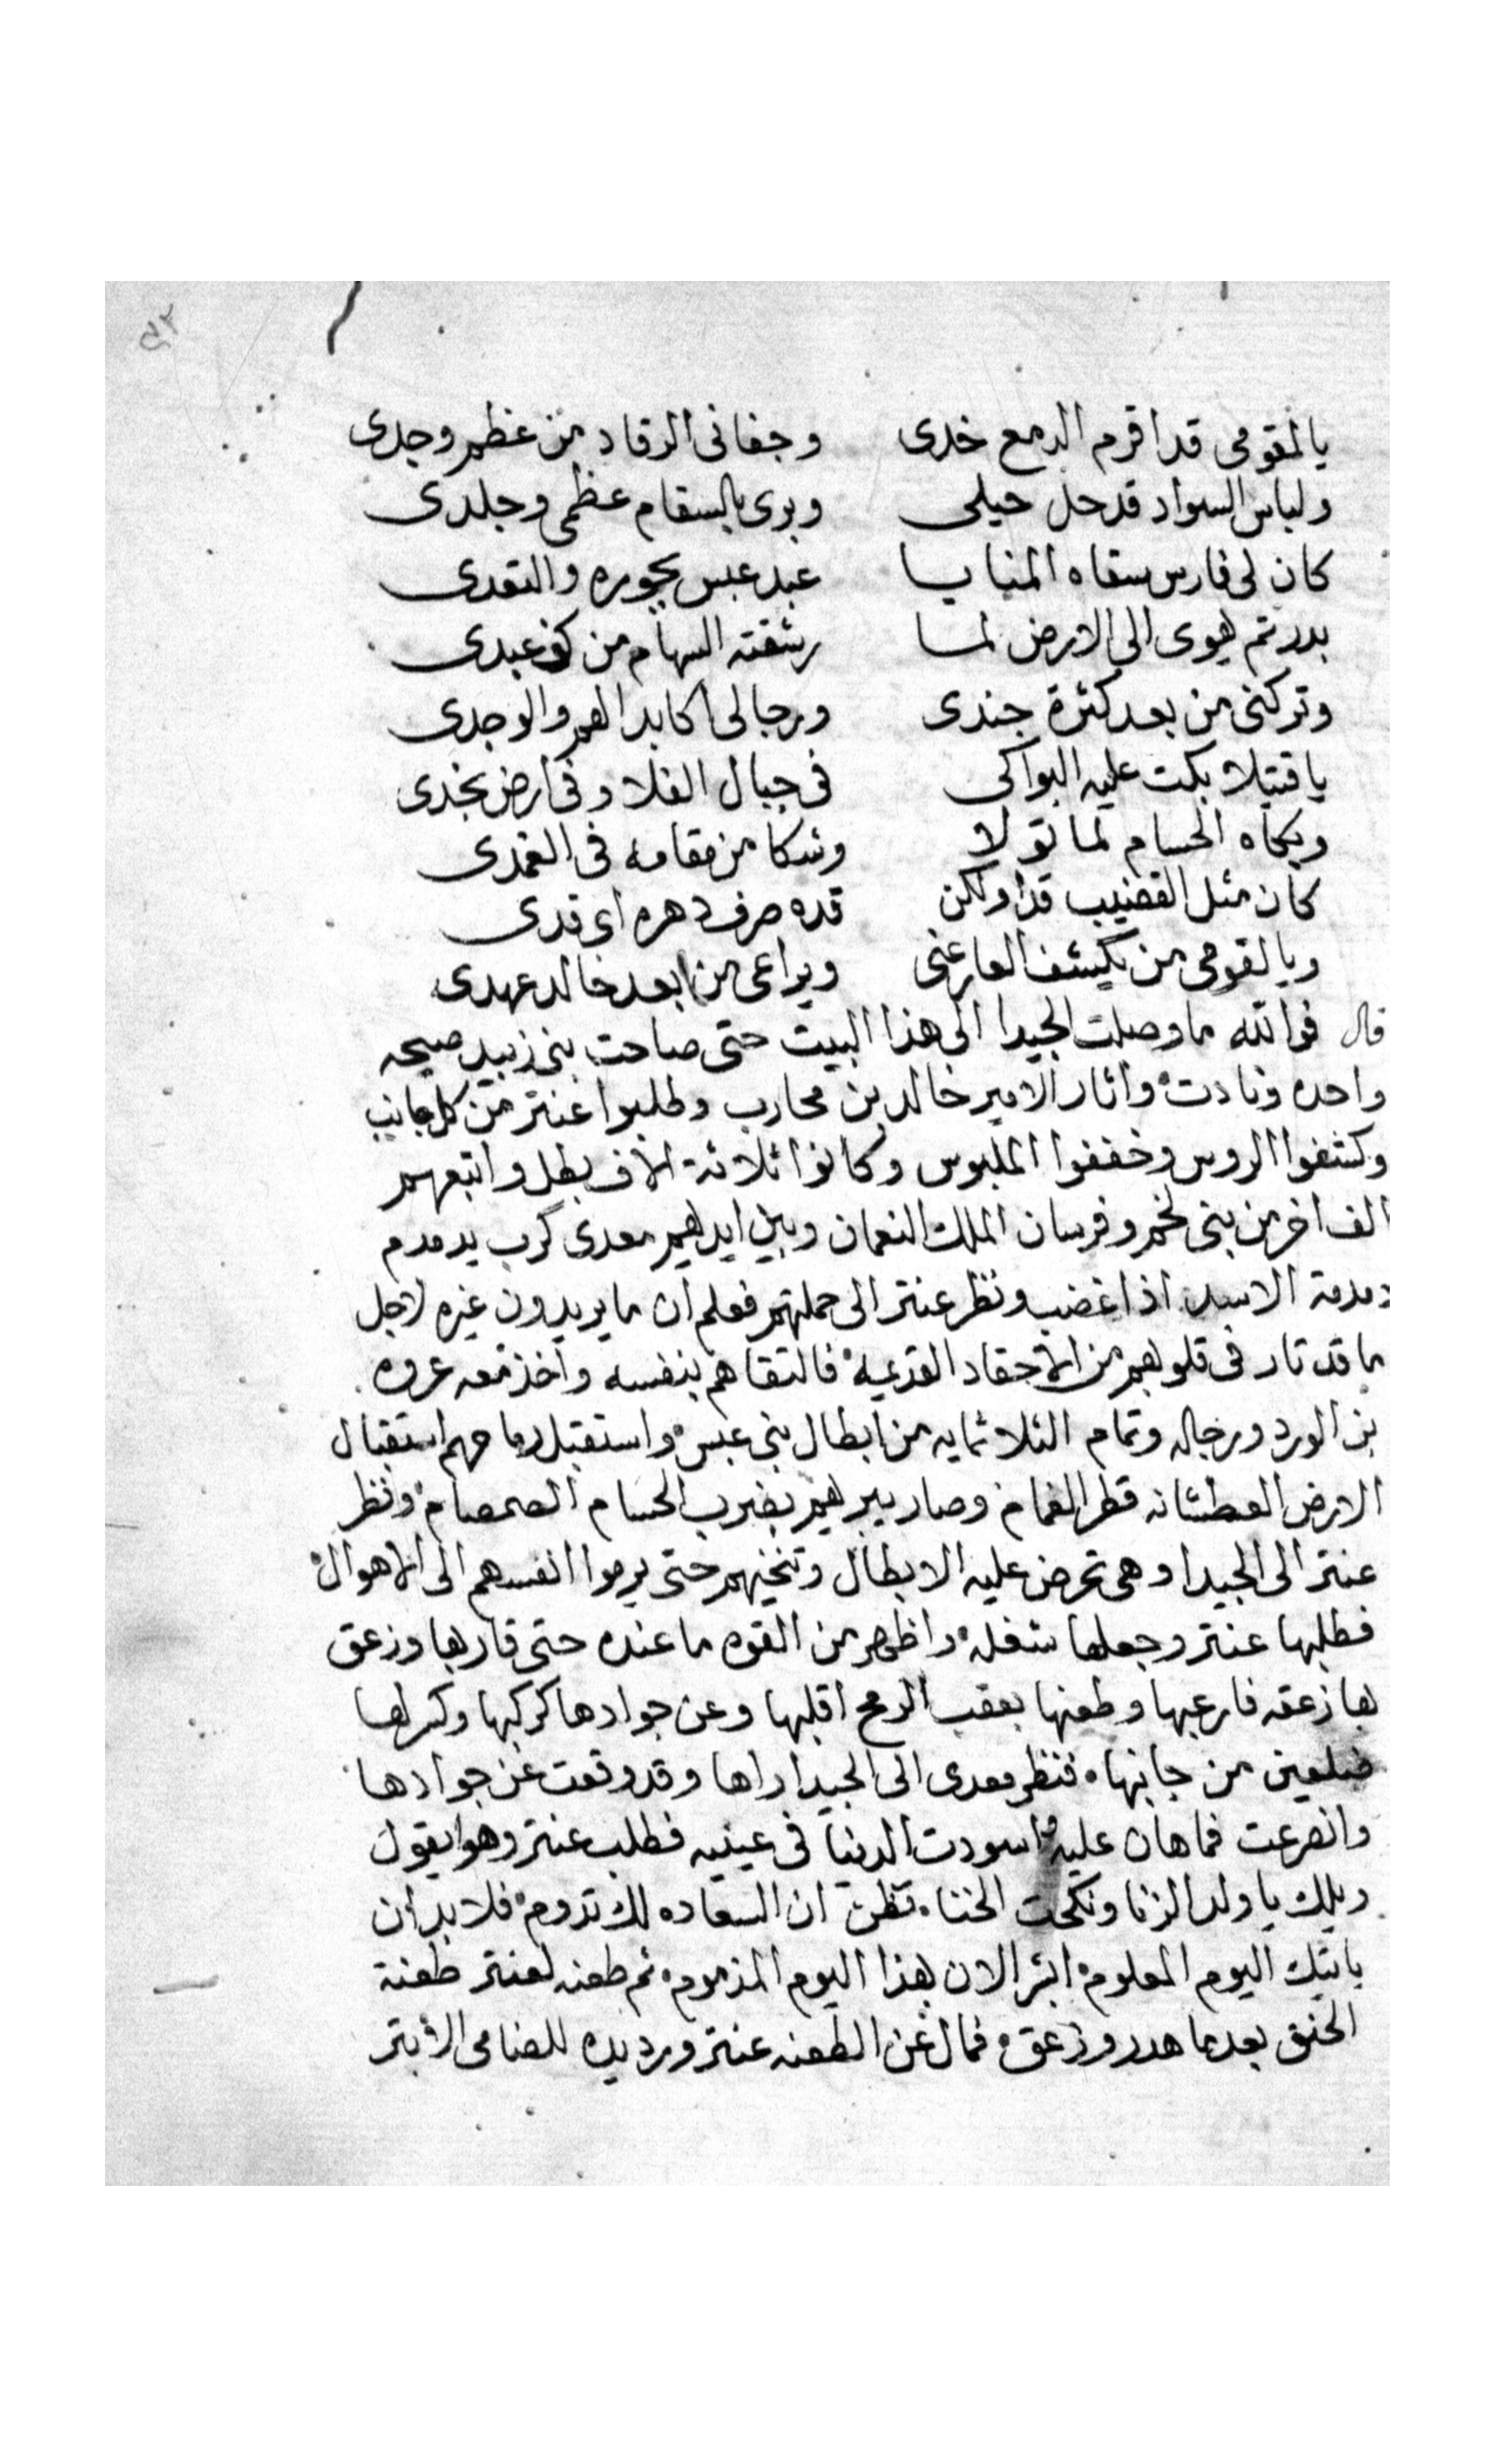 يالقومى قد اقرم الدمع خدى وجفانى الرقاد من عظم وجدى
ولباس السواد قد حل حيلى وبرى بالسقام عظمى وجلدى
كان لى فارس سقاه المنايا عبد عبس بجوره والتعدى
بدر تم هوى الى الارض لما رشقته السهام من كف عبدى
وتركنى من بعد كثرة جندى ورجالى اكابد الهم والوجدى
يا قتيلا بكت عليه البواكى فى جبال الفلا وفى ارض نجدى
وبكاه الحسام لما تولا وشكا من مقامه فى الغمدى
كان مثل القضيب قدا ولكن قده صرف دهره اى قدى
ويا لقومى من يكشف العار عنى ويراعى من بعد خالد عهدى
قال فوالله ما وصلت الجيدا الى هذا البيت حتى صاحت بنى زبيد صيحه
واحده ونادت واثار الامير خالد بن محارب وطلبوا عنتر من كل جانب
وكشفوا الروس وخففوا الملبوس وكانوا ثلاثة الاف بطل واتبعهم
الف اخر من بنى لخم وفرسان الملك النعمان وبين ايديهم معدى كرب يدمدم
دمدمة الاسد اذا غضب ونظر عنتر الى حملتهم فعلم ان ما يريدون غيره لاجل
ما قد ثار فى قلوبهم من الاحقاد القديمه فالتقاهم بنفسه واخذ معه عروه
بن الورد ورجاله وتمام الثلاثمايه من ابطال بنى عبس واستقبل رماحهم استقبال
الارض العطشانه قطر الغمام وصار يبريهم بضرب الحسام الصمصام ونظر
عنتر الى الجيدا وهى تحرض عليه الابطال وتنخيهم حتى يرموا انفسهم الى الاهوال
فطلبها عنتر وجعلها شغله واظهر من القوه ما عنده حتى قاربها وزعق
بها زعقه فارعبها وطعنها بعقب الرمح اقلبها وعن جوادها كركبها وكسر لها
ضلعين من جانبها فنظر معدى الى الجيدا راها وقد وقعت عن جوادها
وانصرعت فما هان عليه واسودت الدنيا فى عينيه فطلب عنتر وهو يقول
ويلك يا ولد الزنا ونكحت الخنا تظن ان السعاده لك تدوم فلا بد ان
ياتيك اليوم المعلوم ابشر الان بهذا اليوم المذموم ثم طعنه لعنتر طعنة
الحنق بعدما هدر وزعق فمال عن الطعنه عنتر ورد يده للضامى الابتر